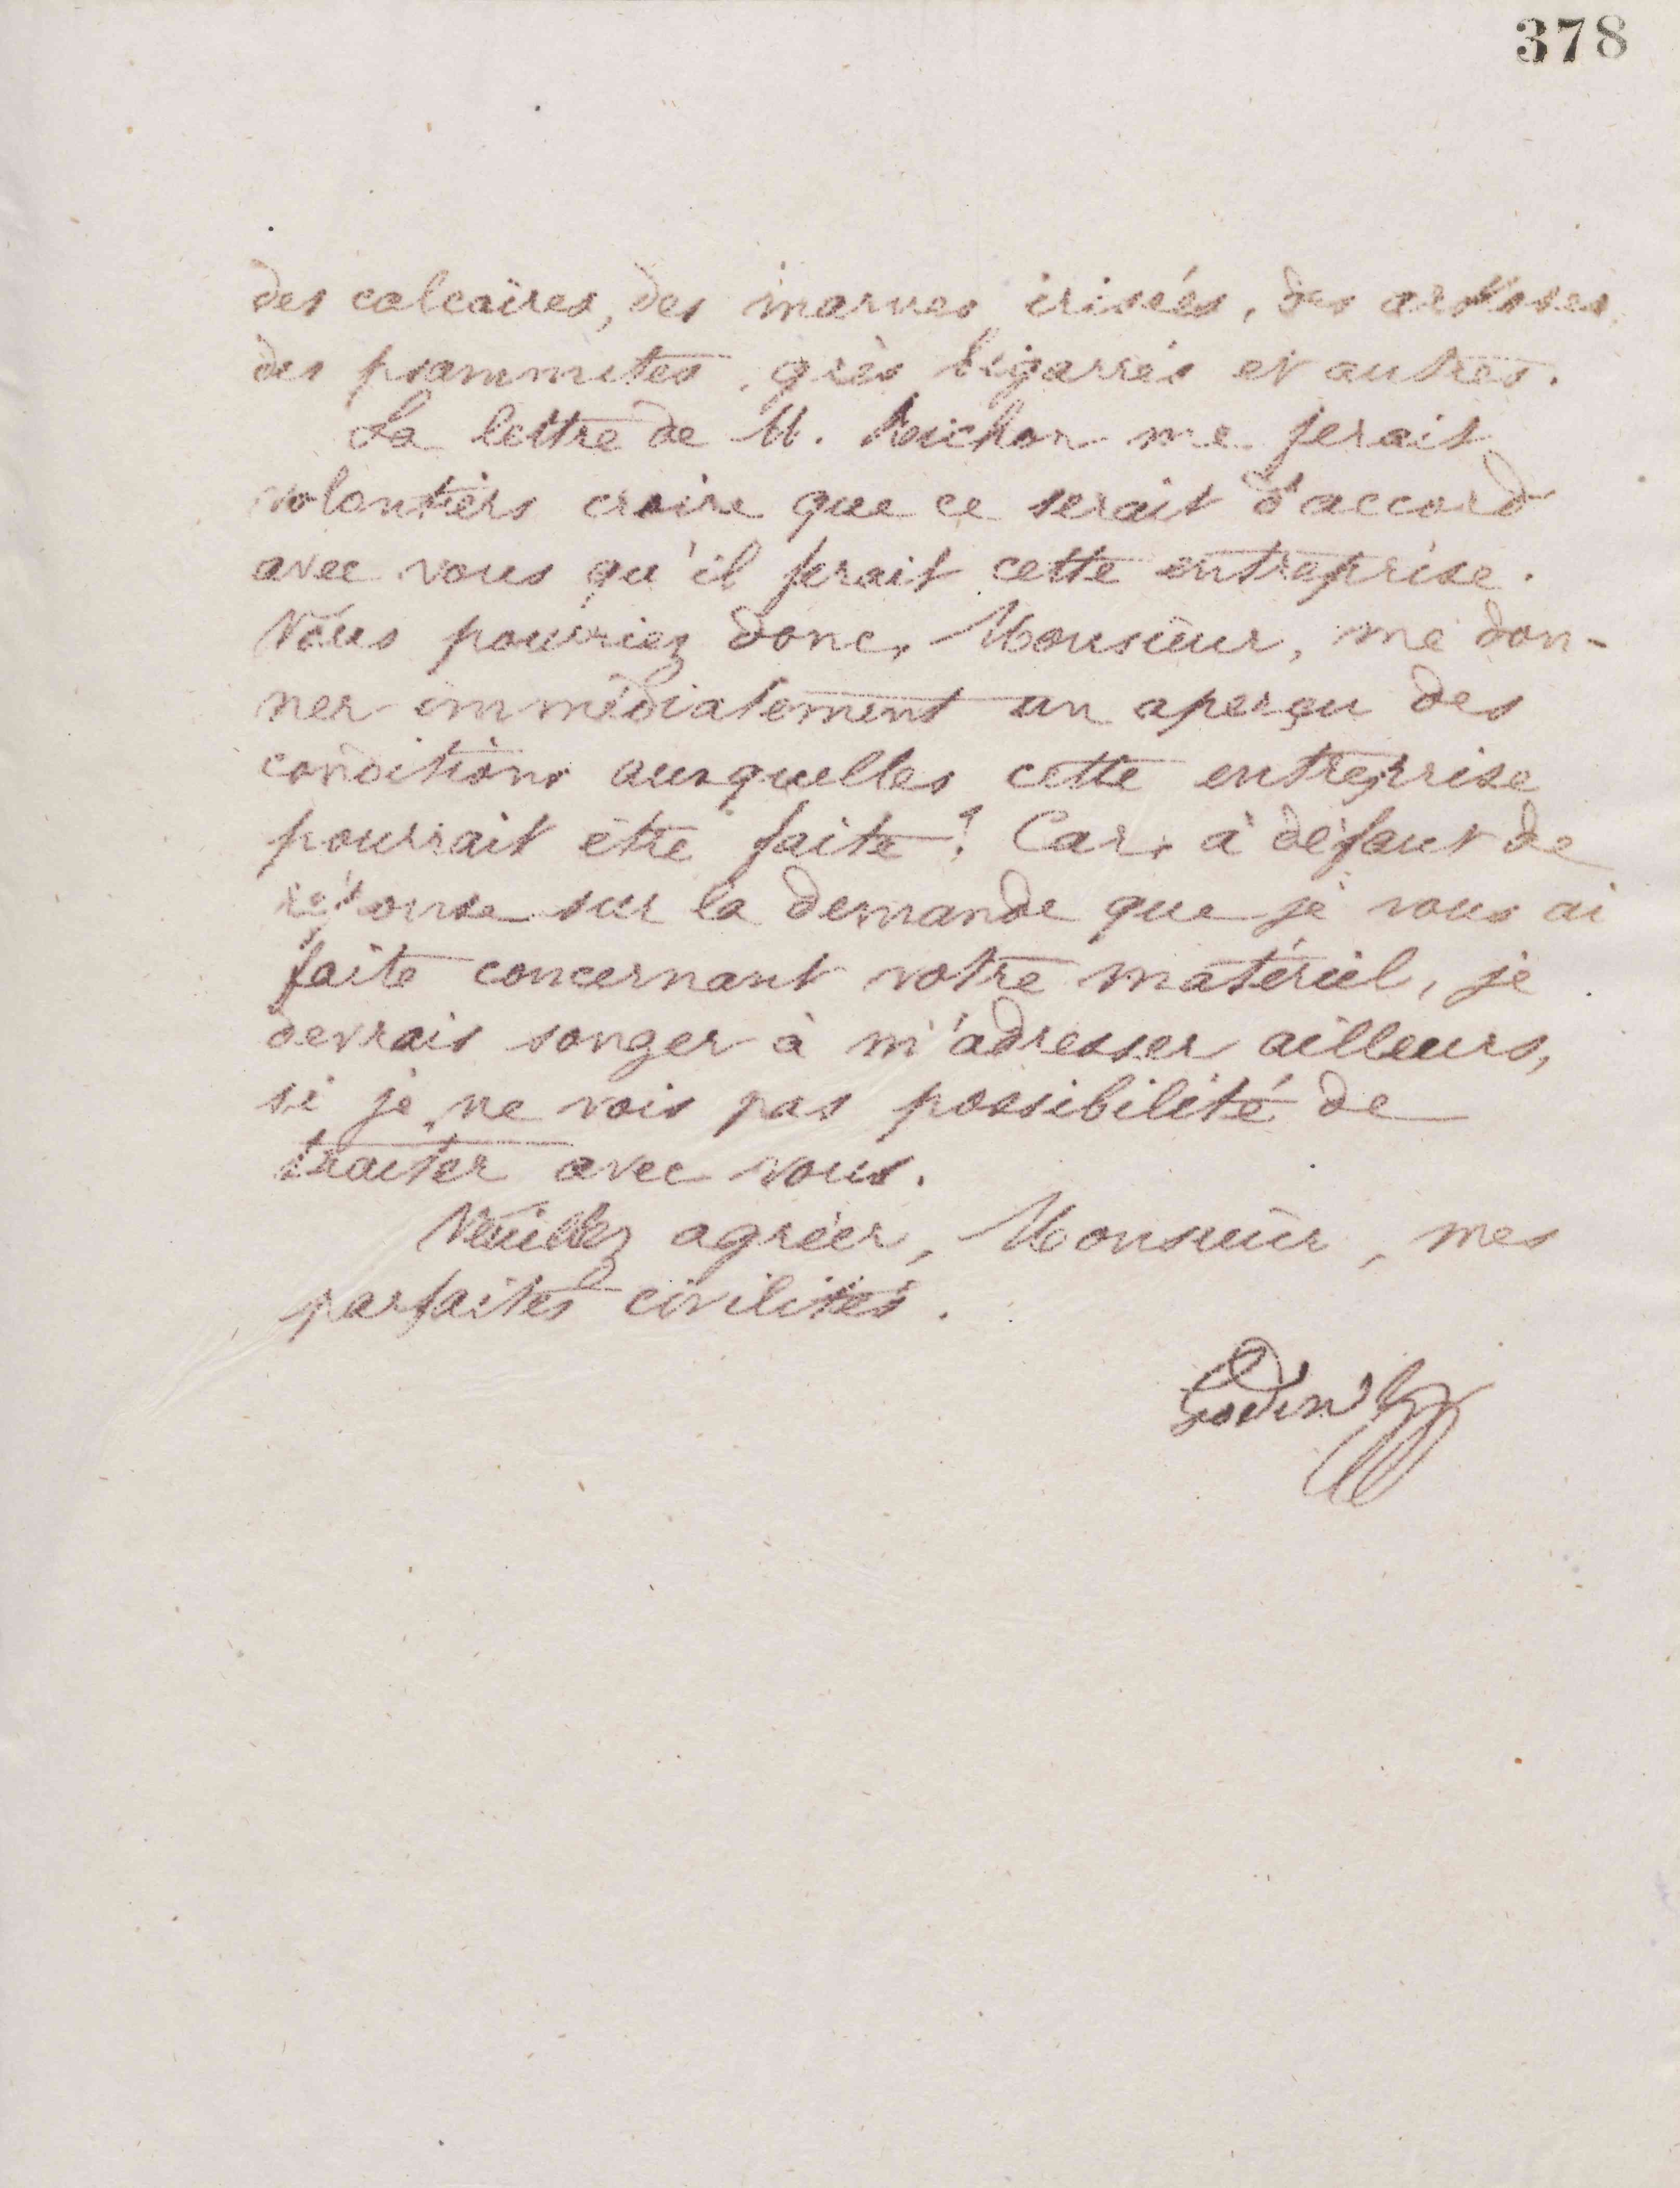 378
des calcaires, des marnes irisées, des
des psammites, grès bigarrés et autres.
La lettre de M. me ferait
volontiers croire que ce serait d'accord
avec vous qu'il ferait cette entreprise.
Vous pourriez donc, Monsieur, me don-
ner immédiatement un aperçu des
conditions auxquelles cette entreprise
pourrait être faite? Car, à défaut de
réponse sur la demande que je vous ai
faite concernant votre matériel, je
devrais songer à m'adresser ailleurs,
si je ne vois pas possibilité de
traiter avec vous.
Veuillez agréer, Monsieur, mes
parfaites civilités.
Godin